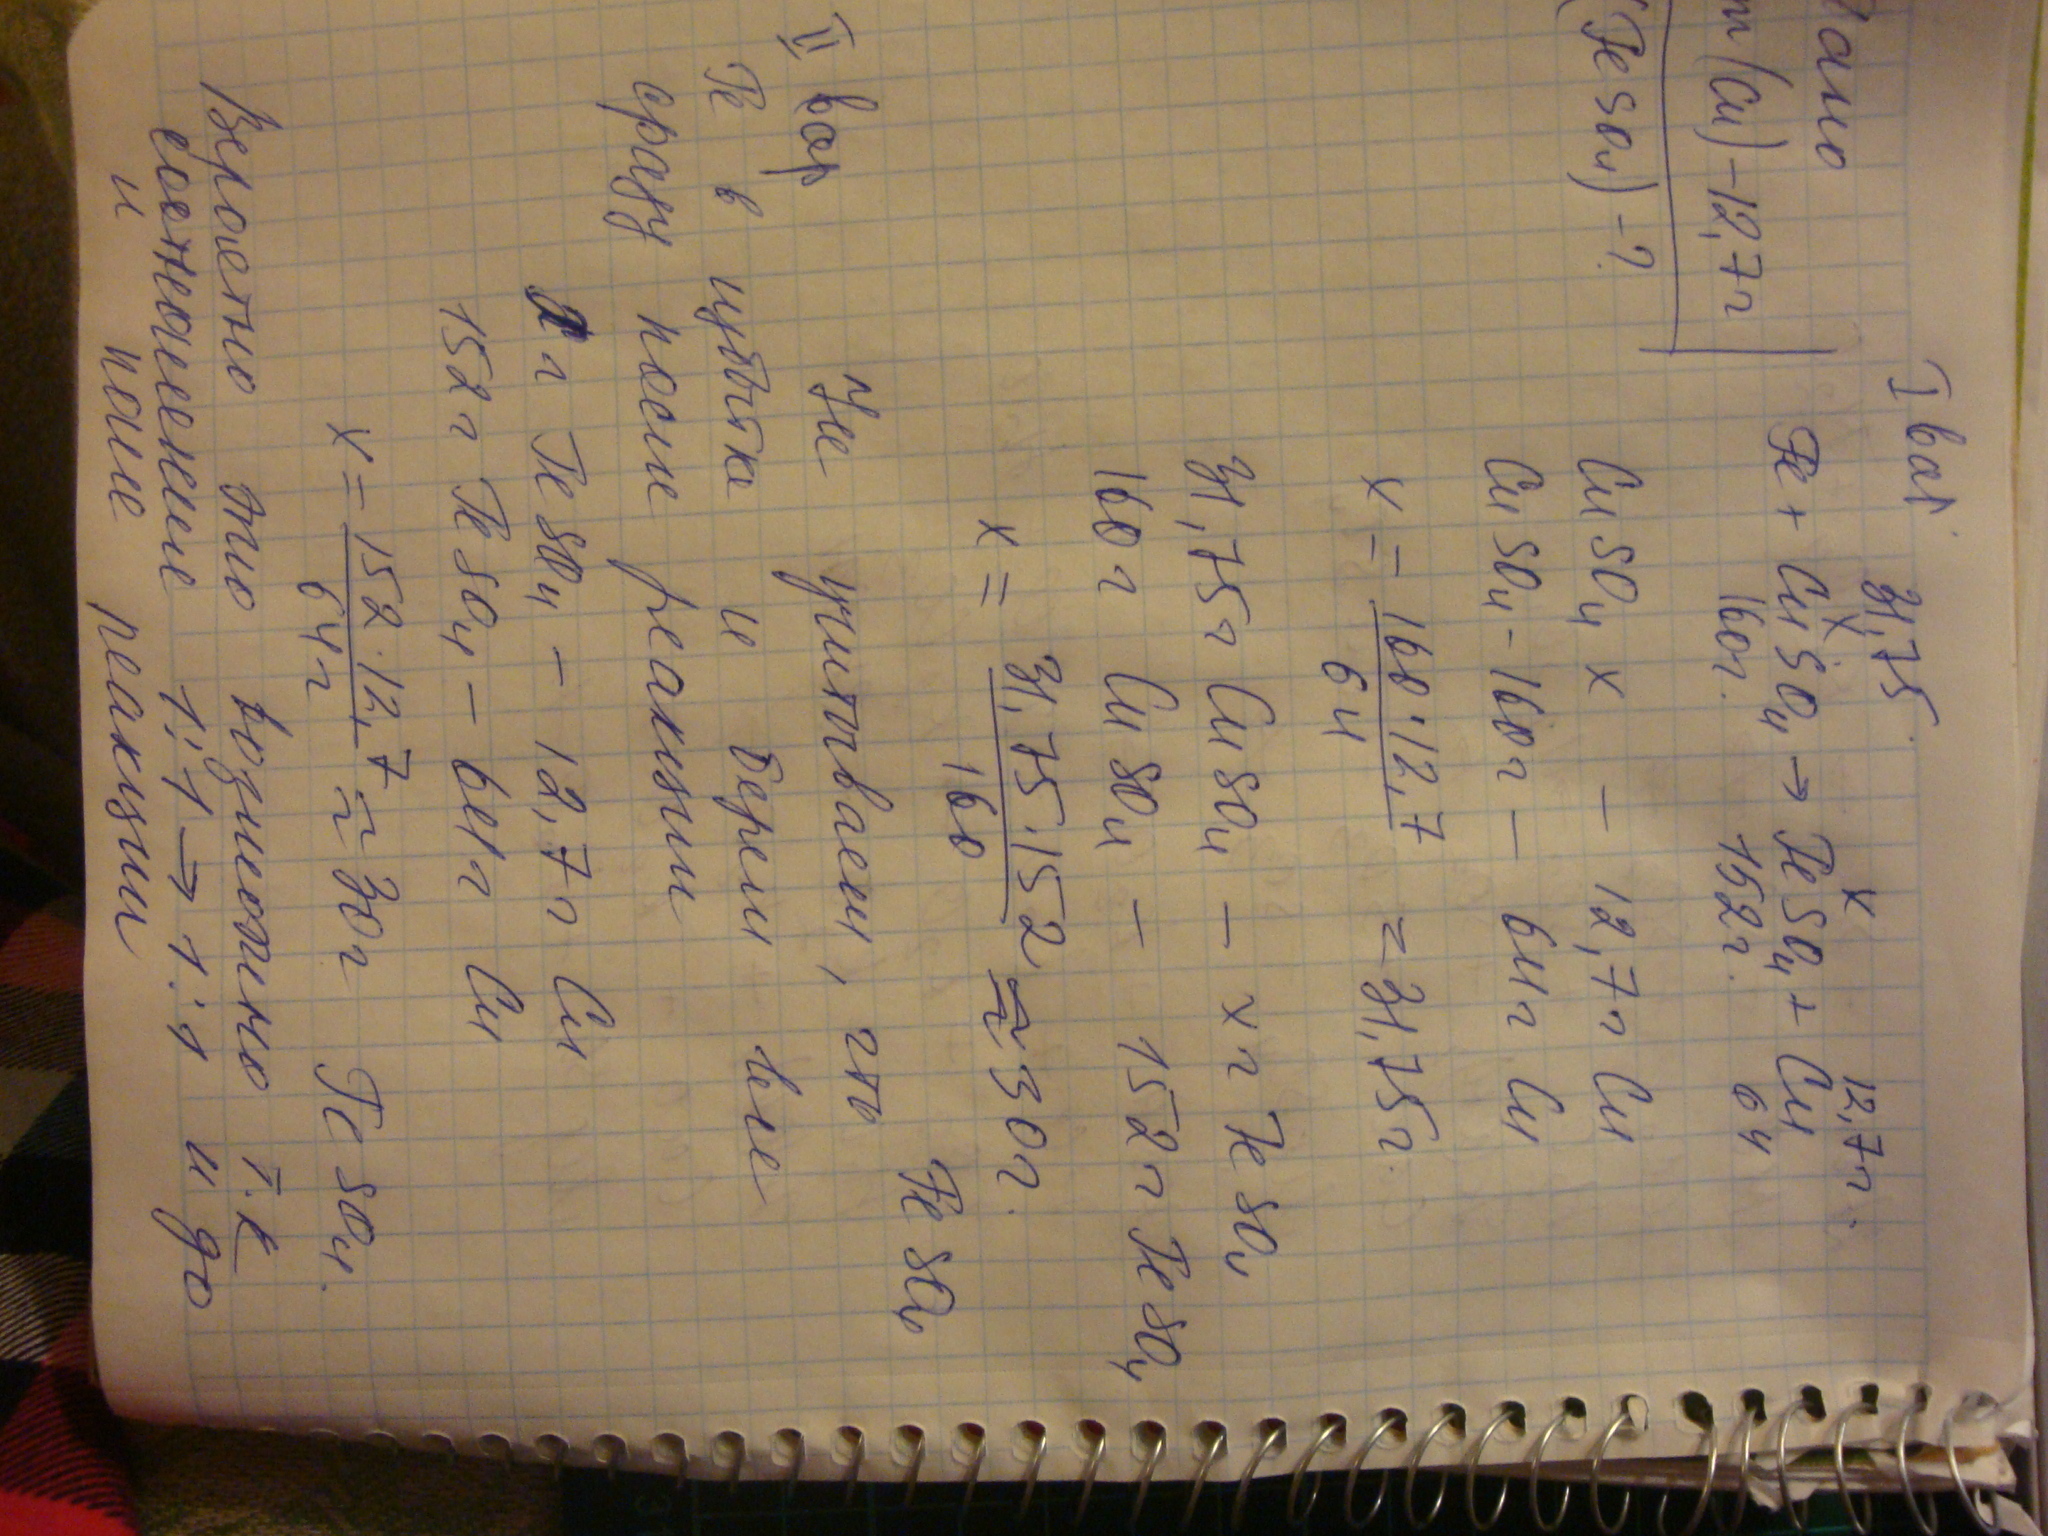 Дано
m(Cu) - 12,7г
(FeSO4) - ?
I вар
31,75 x 12,7г.
Fe + CuSO4 → FeSO4 + Cu
160г. 152г. 64
CuSO4 x - 12,7г Cu
CuSO4 - 160г - 64г Cu
x = 160·12,7 / 64 = 31,75г.
31,75г CuSO4 - xг FeSO4
160г CuSO4 - 152г FeSO4
x = 31,75·152 / 160 ≈ 30г. FeSO4
II вар Не учитываем, что
Fe в избытке и берем все
сразу после реакции
г FeSO4 - 12,7г Cu
152г FeSO4 - 64г Cu
x = 152·12,7 / 64г ≈ 30г FeSO4.
Вероятно это возможно т.к
соотношение 1:1 → 1:1 и до
и после реакции